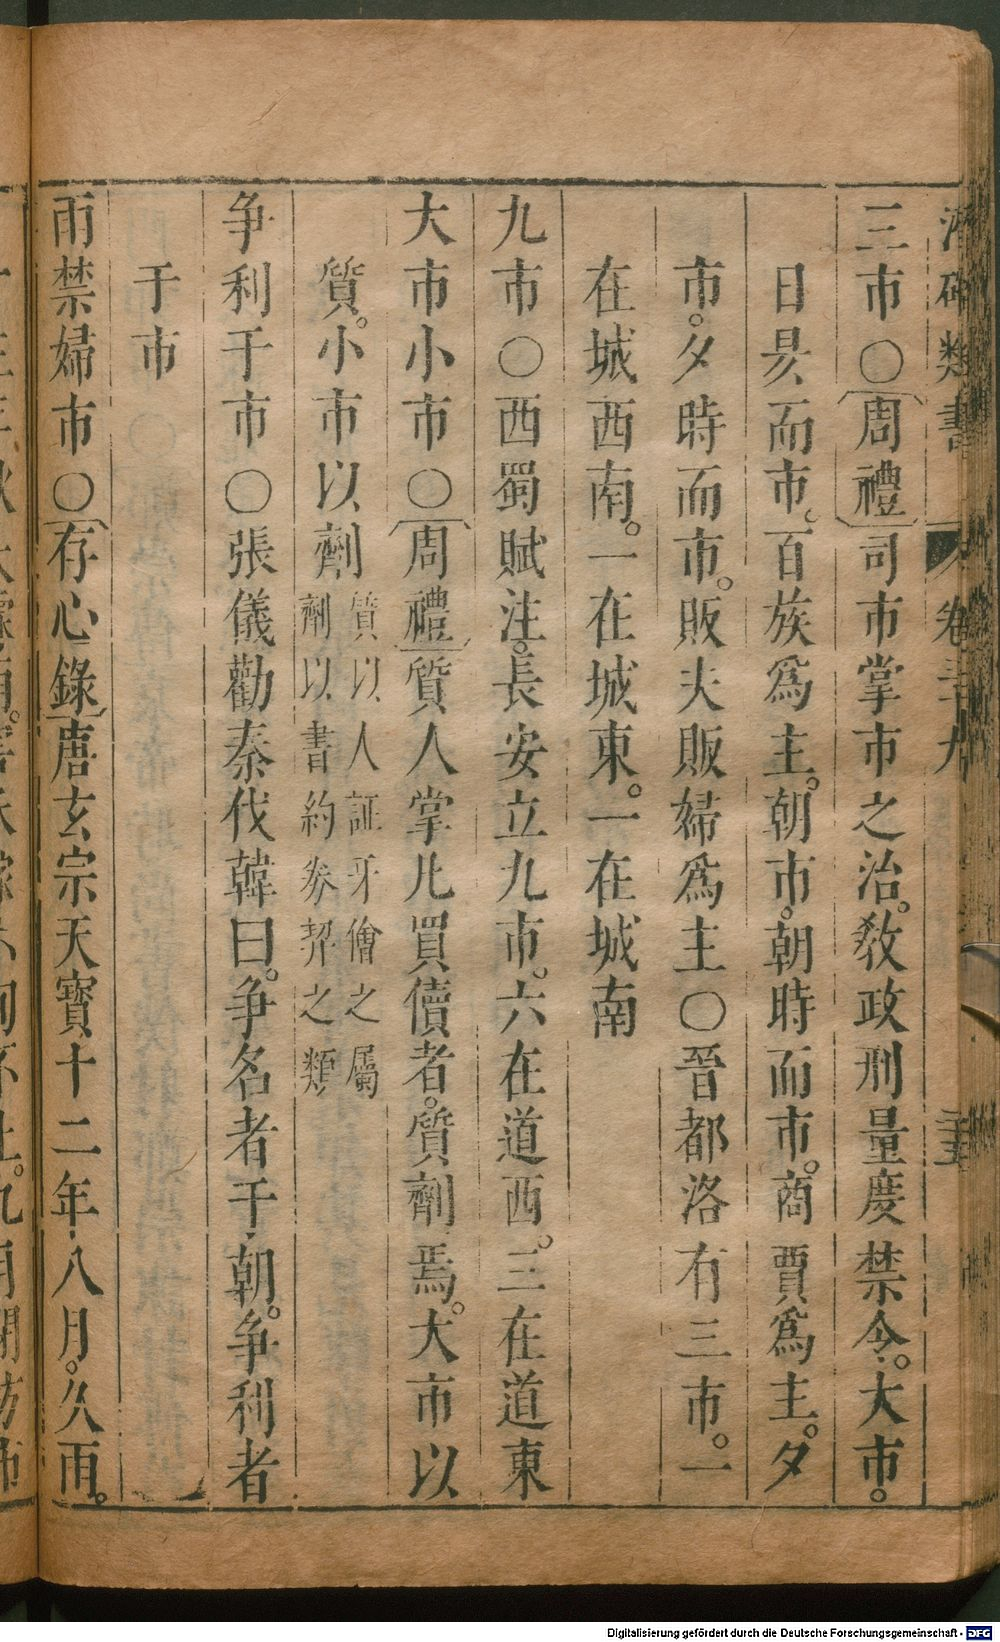 潛確類書 卷三十九 三十五
三市○周禮司市掌市之治。敎政刑量度禁令。大市。
日昃而市。百族爲主。朝市。朝時而市。商賈爲主。夕
市。夕時而市。販夫販婦爲主○晉都洛有三市。一
在城西南。一在城東。一在城南
九市○西蜀賦注。長安立九市。六在道西。三在道東
大市小市○周禮質人掌凡買儥者。質劑焉。大市以
質。小市以劑質以人証牙儈之屬
劑以書約券契之類
争利于市○張儀勸秦伐韓曰。争名者于朝。争利者
于市
雨禁婦市○存心錄唐玄宗天寶十二年八月。久雨。
Digitalisierung gefördert durch die Deutsche Forschungsgemeinschaft - DFG